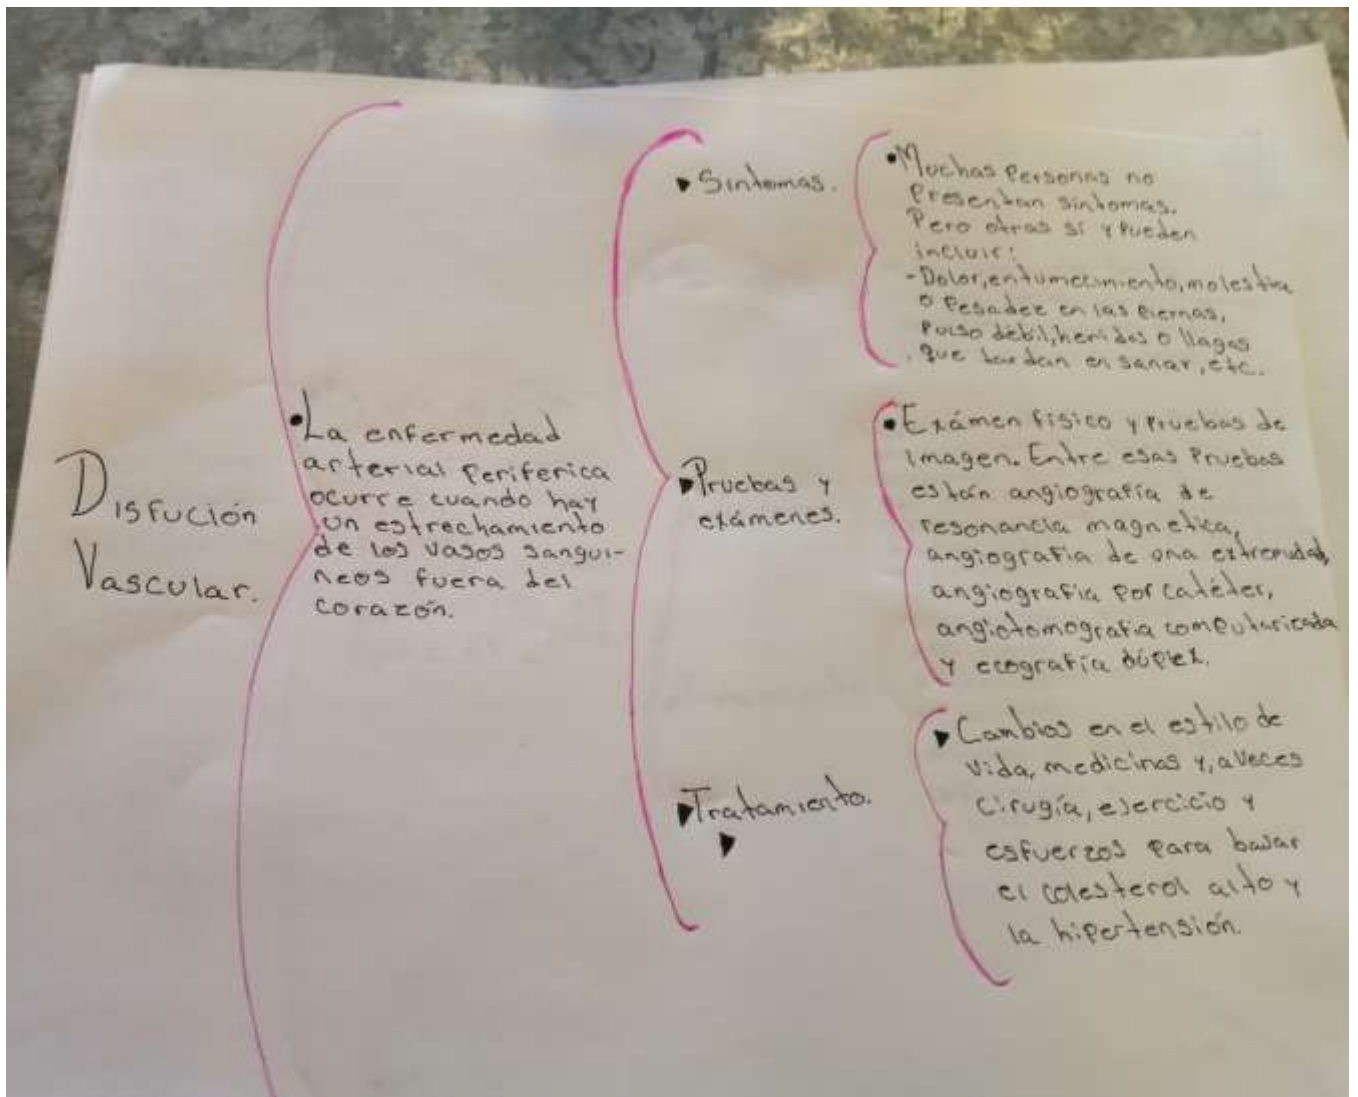 Disfución
Vascular.
•La enfermedad
arterial periferica
ocurre cuando hay
un estrechamiento
de los vasos sangui-
neos fuera del
corazón.
▸Sintomas.
•Muchas personas no
presentan sintomas.
Pero otras sí y pueden
incluir:
-Dolor, entumecimiento, molestia
o pesadez en las piernas,
pulso débil, heridas o llagas
que tardan en sanar, etc.
▸Pruebas y
exámenes.
•Exámen físico y pruebas de
imagen. Entre esas pruebas
están angiografía de
resonancia magnetica,
angiografia de una extremidad,
angiografía por catéter,
angiotomografia computaricada
y ecografía dúplex.
▸Tratamiento.
▸Cambios en el estilo de
vida, medicinas y, a veces
cirugía, ejercicio y
esfuerzos para bajar
el colesterol alto y
la hipertensión.